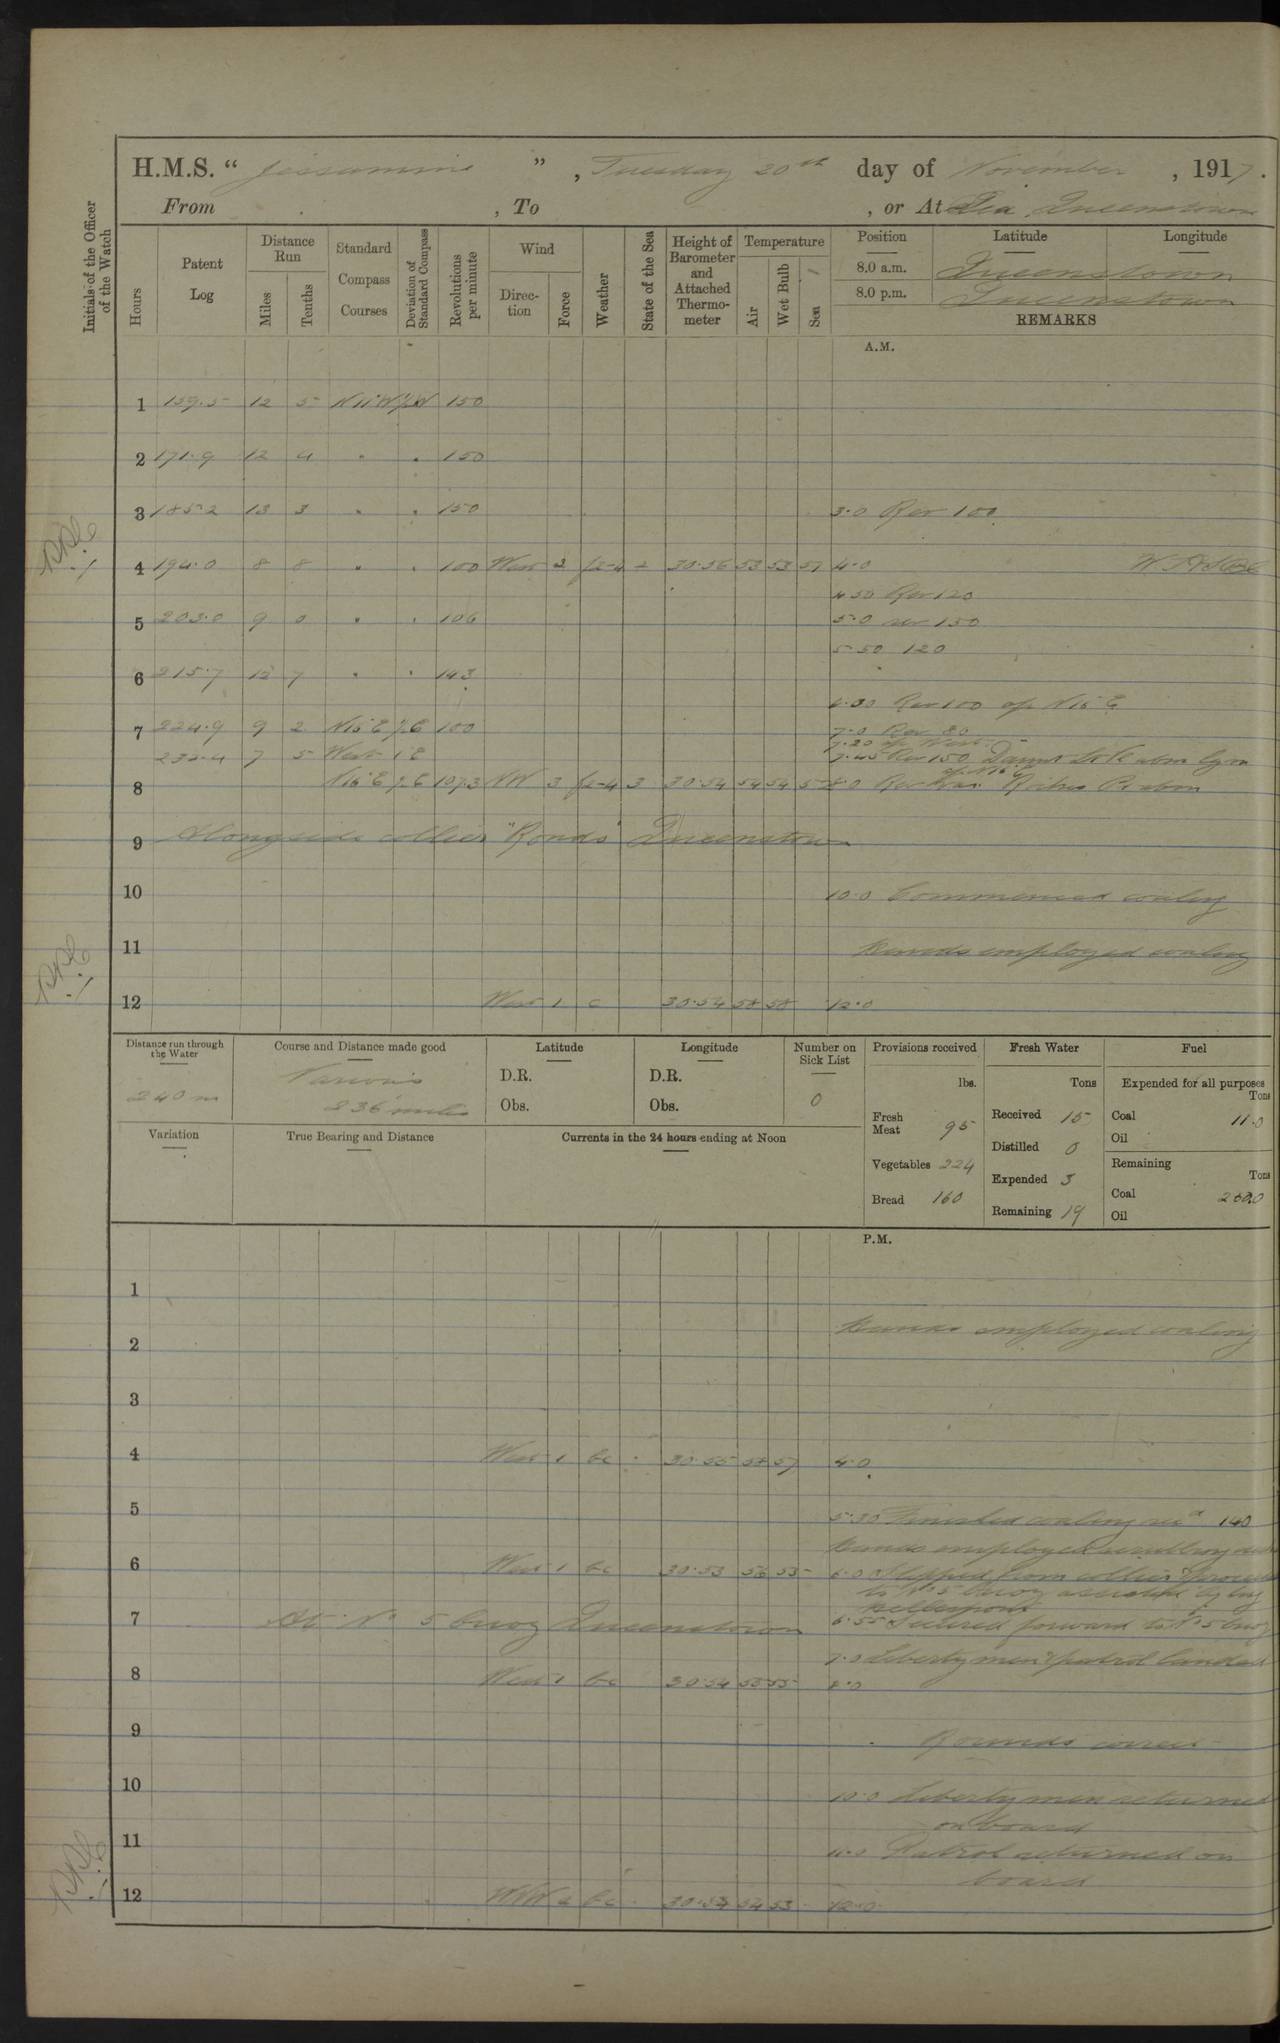 H.M.S. “ Jessamine ” , Tuesday 20th day of November , 1917.
From , To , or At Sea Queenstown
Initials of the Officer of the Watch
Hours
Patent Log
Distance Run
Miles
Tenths
Standard Compass Courses
Deviation of Standard Compass
Revolutions per minute
Wind
Direction
Force
Weather
State of the Sea
Height of Barometer and Attached Thermometer
Temperature
Air
Wet Bulb
Sea
Position Latitude Longitude
8.0 a.m. Queenstown
8.0 p.m. Queenstown
REMARKS
A.M.
1 159.5 12 5 N11°W 150
2 171.9 12 4 " " 150
3 185.2 13 3 " " 150 3.0 Rev 100
4 194.0 8 8 " " 100 West 2 2-4 2 30.56 53 53 57 4.0
4.50 Rev 120
5 203.0 9 0 " " 106 5.0 rev 150
5.50 120
6 215.7 12 7 " " 143
6.30 Rev 100 N16°E
7 224.9 9 2 N16°E 100 7.0 Rev 80
232.4 7 5 West 1 E 7.45 Rev 150
8 N16°E 107.3 NW 3 2-4 3 30.54 54 54 8.0
9 Alongside collier "Ronda" Queenstown
10 10.0 Commenced coaling
11 Hands employed coaling
12 West 1 c 30.54 58 58 12.0
Distance run through the Water Course and Distance made good Latitude Longitude Number on Sick List Provisions received Fresh Water Fuel
240 m Various
236 miles
D.R. D.R.
Obs. Obs. 0
lbs. Tons Expended for all purposes Tons
Fresh Meat 95 Received 15 Coal 11.0
Oil
Variation True Bearing and Distance Currents in the 24 hours ending at Noon
Vegetables 224 Distilled 0 Remaining Tons
Bread 160 Expended 3 Coal
Remaining 19 Oil
P.M.
1
2 Hands employed coaling
3
4 West 1 bc 30.55 58 57 4.0
5 5.30 Finished coaling recd 140
Hands employed
6 West 1 bc 30.53 56 55 6.0 Slipped from collier & proceeded
to No 5 buoy assisted by tug
Hellespont
7 At No 5 buoy Queenstown 6.55 Secured forward to No 5 buoy
7.0 Liberty men & patrol landed
8 West 1 bc 30.54 55 55 8.0
9 Rounds correct
10 10.0 Liberty men returned
on board
11 11.0 Patrol returned on
board
12 WNW 2 bc 30.54 54 53 12.0